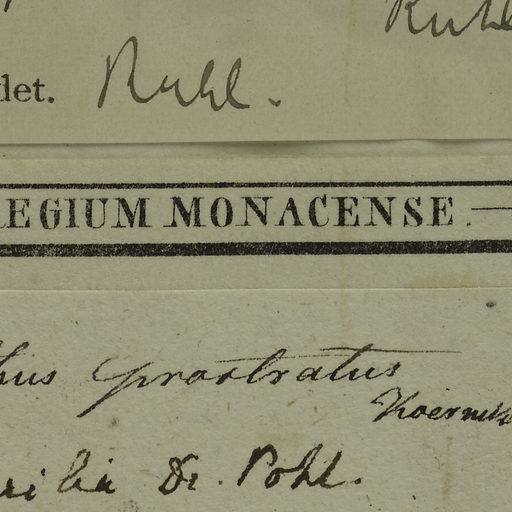 Ruhl
det. Ruhl.
EGIUM MONACENSE.
hus prostratus
Koernick
ilia Dr. Pohl.